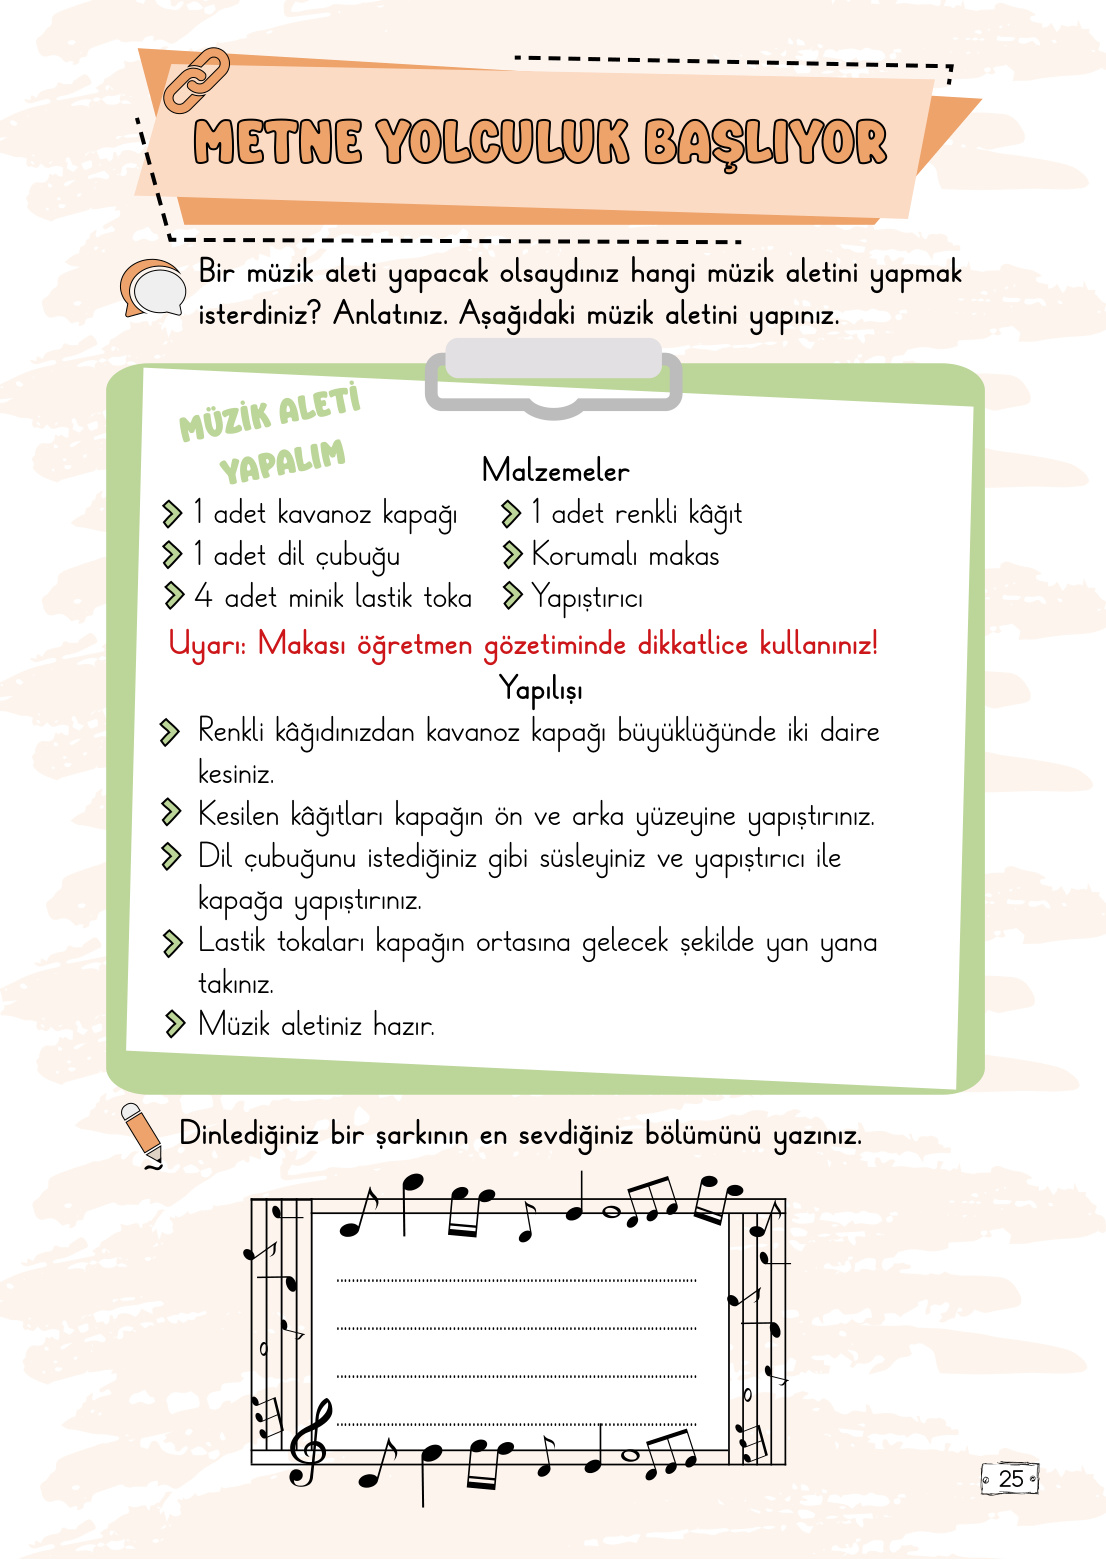 METNE YOLCULUK BAŞLIYOR
Bir müzik aleti yapacak olsaydınız hangi müzik aletini yapmak
isterdiniz? Anlatınız. Aşağıdaki müzik aletini yapınız.
MÜZİK ALETİ
YAPALIM
Malzemeler
1 adet kavanoz kapağı
1 adet renkli kâğıt
1 adet dil çubuğu
Korumalı makas
4 adet minik lastik toka
Yapıştırıcı
Uyarı: Makası öğretmen gözetiminde dikkatlice kullanınız!
Yapılışı
Renkli kâğıdınızdan kavanoz kapağı büyüklüğünde iki daire
kesiniz.
Kesilen kâğıtları kapağın ön ve arka yüzeyine yapıştırınız.
Dil çubuğunu istediğiniz gibi süsleyiniz ve yapıştırıcı ile
kapağa yapıştırınız.
Lastik tokaları kapağın ortasına gelecek şekilde yan yana
takınız.
Müzik aletiniz hazır.
Dinlediğiniz bir şarkının en sevdiğiniz bölümünü yazınız.
25